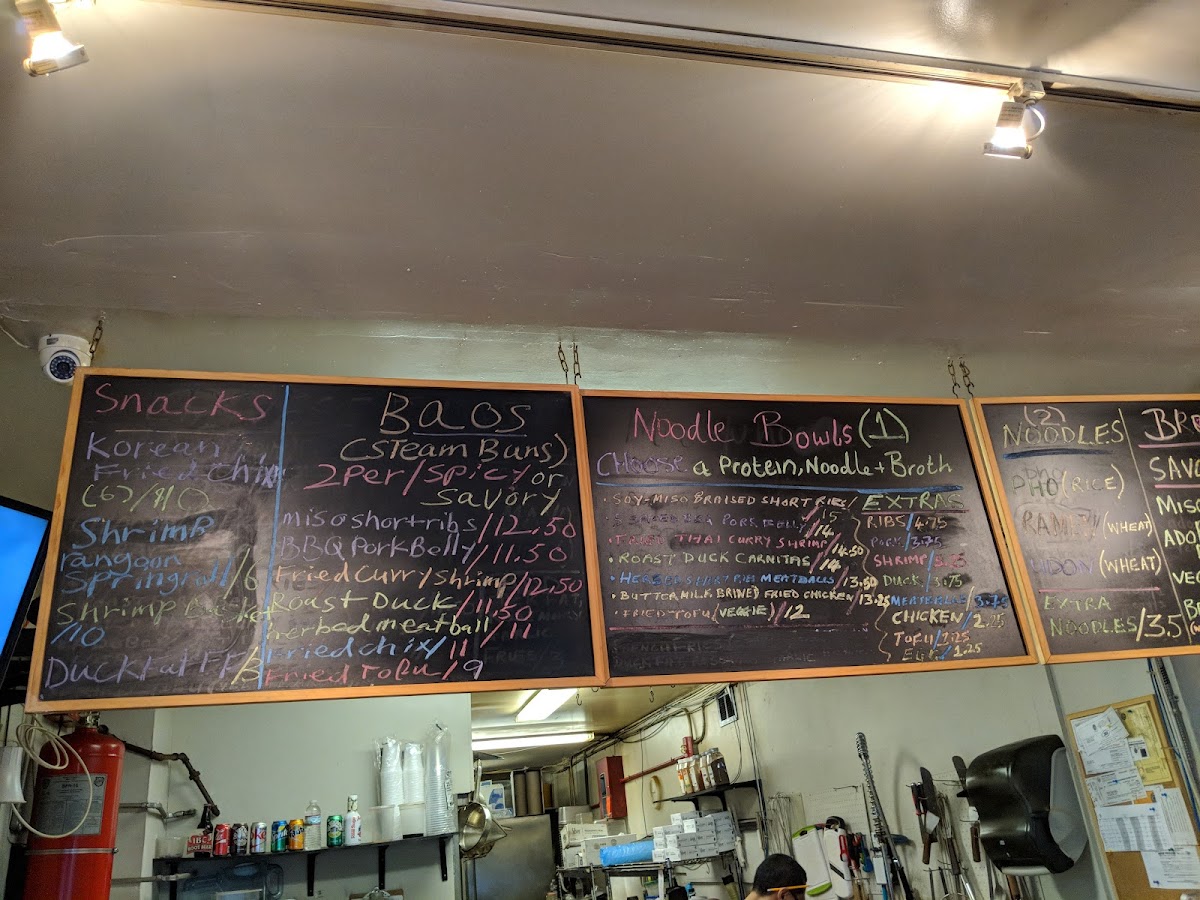 Snacks
Korean
Fried Chix
(6)/10
Shrimp
rangoon
Springroll/6
Shrimp Bucket
/10
Duck Fat FF/3
BAOS
(STeam Buns)
2Per/Spicy or
Savory
miso shortribs/12.50
BBQ Pork Belly/11.50
Fried Curry shrimp/12.50
Roast Duck/11.50
herbed meatball/11
Fried chix/11
Fried Tofu/9
Noodle Bowls (1)
Choose a Protein, Noodle + Broth
• SOY-MISO BRAISED SHORT RIBS/15
PORK BELLY/14
THAI CURRY SHRIMP/14.50
• ROAST DUCK CARNITAS/14
• HERBED SHORT RIB MEATBALLS/13.50
• BUTTERMILK BRINED FRIED CHICKEN/13.25
• FRIED TOFU (VEGGIE)/12
EXTRAS
RIBS/4.75
PORK/3.75
SHRIMP/5.25
DUCK/3.75
MEATBALLS/3.75
CHICKEN/2.25
TOFU/1.25
EGG/1.25
(2)
NOODLES
PHO (RICE)
RAMEN (WHEAT)
UDON (WHEAT)
EXTRA
NOODLES/3.5
BRO
SAVO
MISO
ADO
VEG